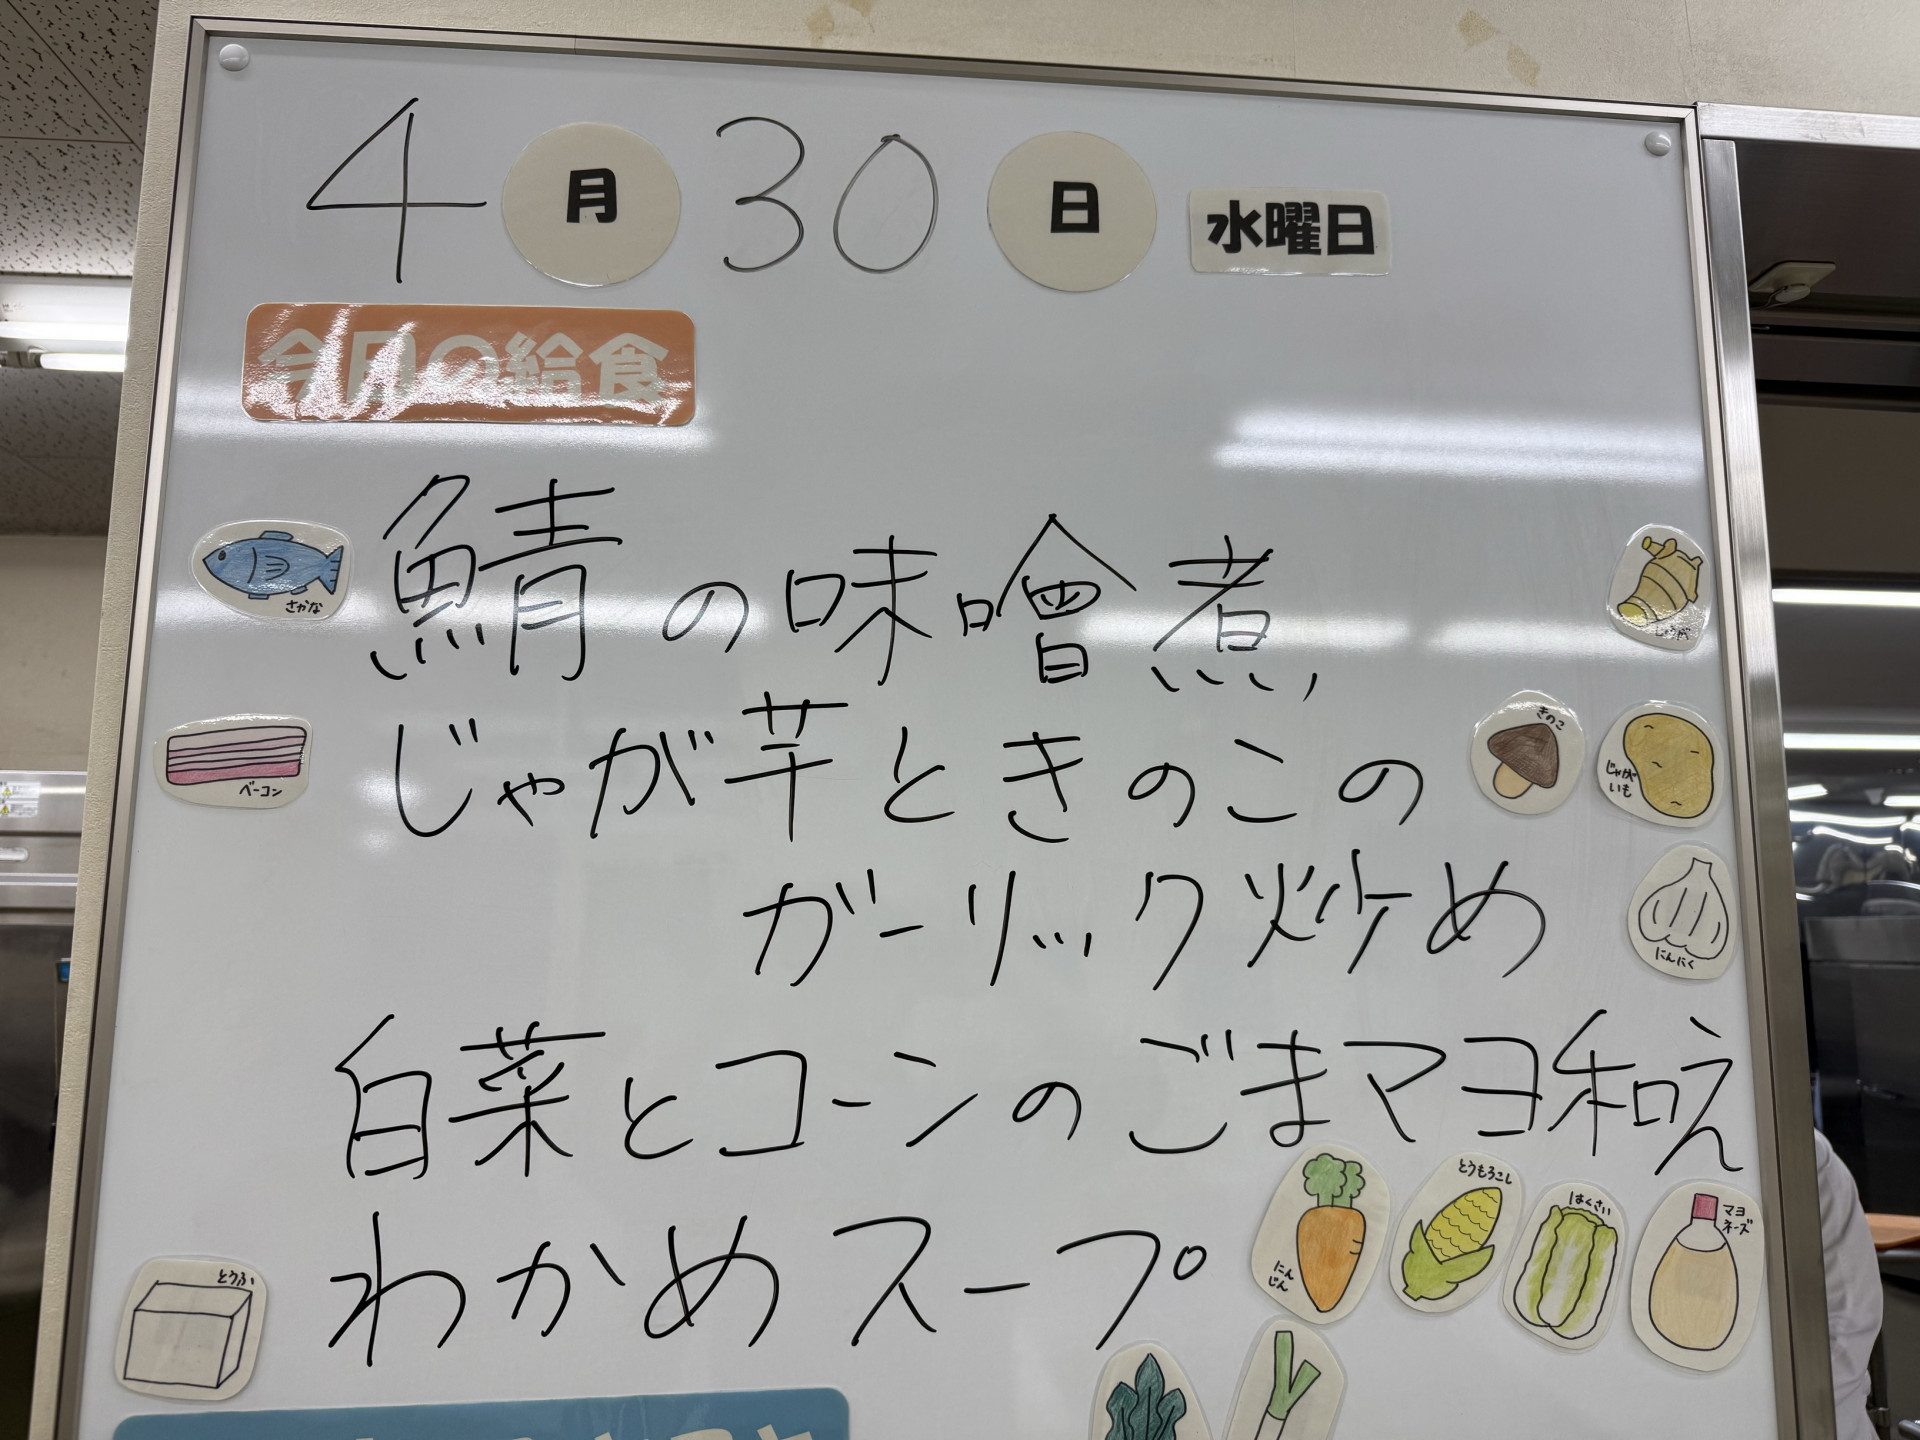 4月30日 水曜日
今日の給食
さかな
鯖の味噌煮
しょうが
ベーコン
じゃが芋ときのこの
きのこ
じゃがいも
ガーリック炒め
にんにく
白菜とコーンのごまマヨ和え
にんじん
とうもろこし
はくさい
マヨネーズ
とうふ
わかめスープ